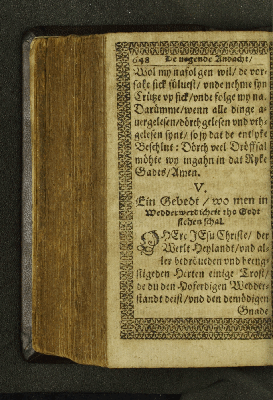 648 De vögende Andacht/
Wol my nafolgen wil/ de vor-
sake sick süluest/ vnde neme syn
Crütze vp sick/ vnde folge my na.
Darümme/ wenn alle dinge a-
uergelesen/ dörchgelesen vnd vth-
gelesen synt/ so ys dat de entlyke
Beschlut: Dörch veel Dröffsal
möhte wy ingahn in dat Ryke
Gades/ Amen.
V.
Ein Gebedt/ wo men in
Wedderwerdicheit tho Godt
süchten schal.
O HErr JEsu Christe/ der
Werlt Heylandt/ vnd al-
ler bedröueden vnd beeng-
stigeden Herten einige Trost/
de du den Hoferdigen Wedder-
standt deist/ vnd den demödigen
Gnade